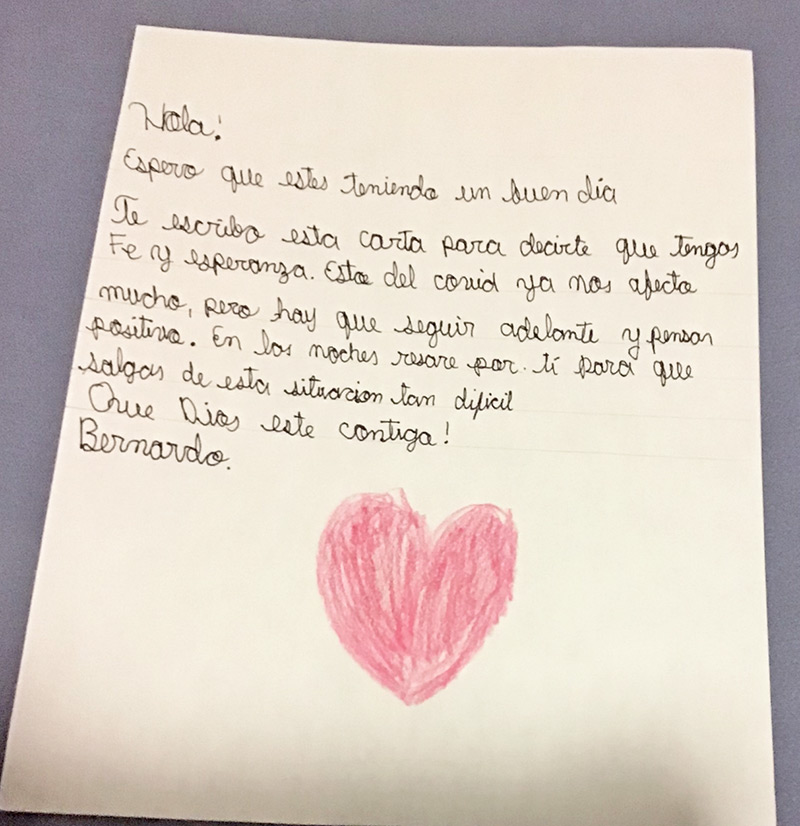 Hola!
Espero que estes teniendo un buen día
Te escribo esta carta para decirte que tengas
Fe y esperanza. Esto del covid ya nos afecto
mucho, pero hay que seguir adelante y pensar
positivo. En las noches resare por ti para que
salgas de esta situacion tan dificil
Que Dios este contigo!
Bernardo.